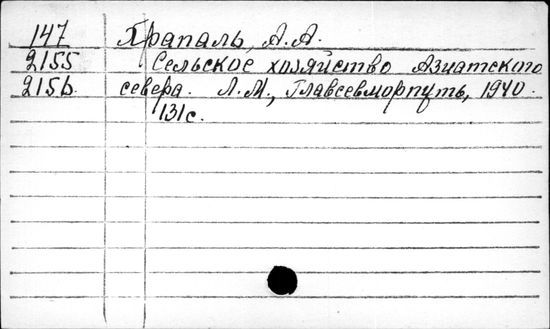 147 Трапаль, А.А.
2155 Сельское хозяйство Азиатского
2156. севера. Л.М., Главсевморпуть, 1940.
131с.